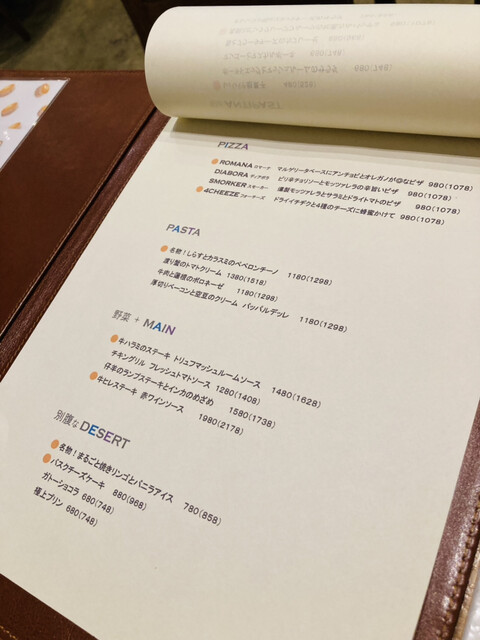 PIZZA
ROMANA ロマーナ マルゲリータベースにアンチョビとオレガノが◎なピザ 980(1078)
DIABORA ディアボラ ピリ辛チョリソーとモッツァレラの辛旨いピザ 980(1078)
SMORKER スモーカー 燻製モッツァレラとサラミとドライトマトのピザ 980(1078)
4CHEEZE フォーチーズ ドライイチヂクと4種のチーズに蜂蜜かけて 980(1078)
PASTA
名物!しらすとカラスミのペペロンチーノ 1180(1298)
渡り蟹のトマトクリーム 1380(1518)
牛肉と蓮根のボロネーゼ 1180(1298)
厚切りベーコンと空豆のクリーム パッパルデッレ 1180(1298)
野菜 + MAIN
牛ハラミのステーキ トリュフマッシュルームソース 1480(1628)
チキングリル フレッシュトマトソース 1280(1408)
仔羊のランプステーキとインカのめざめ 1580(1738)
牛ヒレステーキ 赤ワインソース 1980(2178)
別腹な DESERT
名物!まるごと焼きリンゴとバニラアイス 780(858)
バスクチーズケーキ 880(968)
ガトーショコラ 680(748)
極上プリン 680(748)